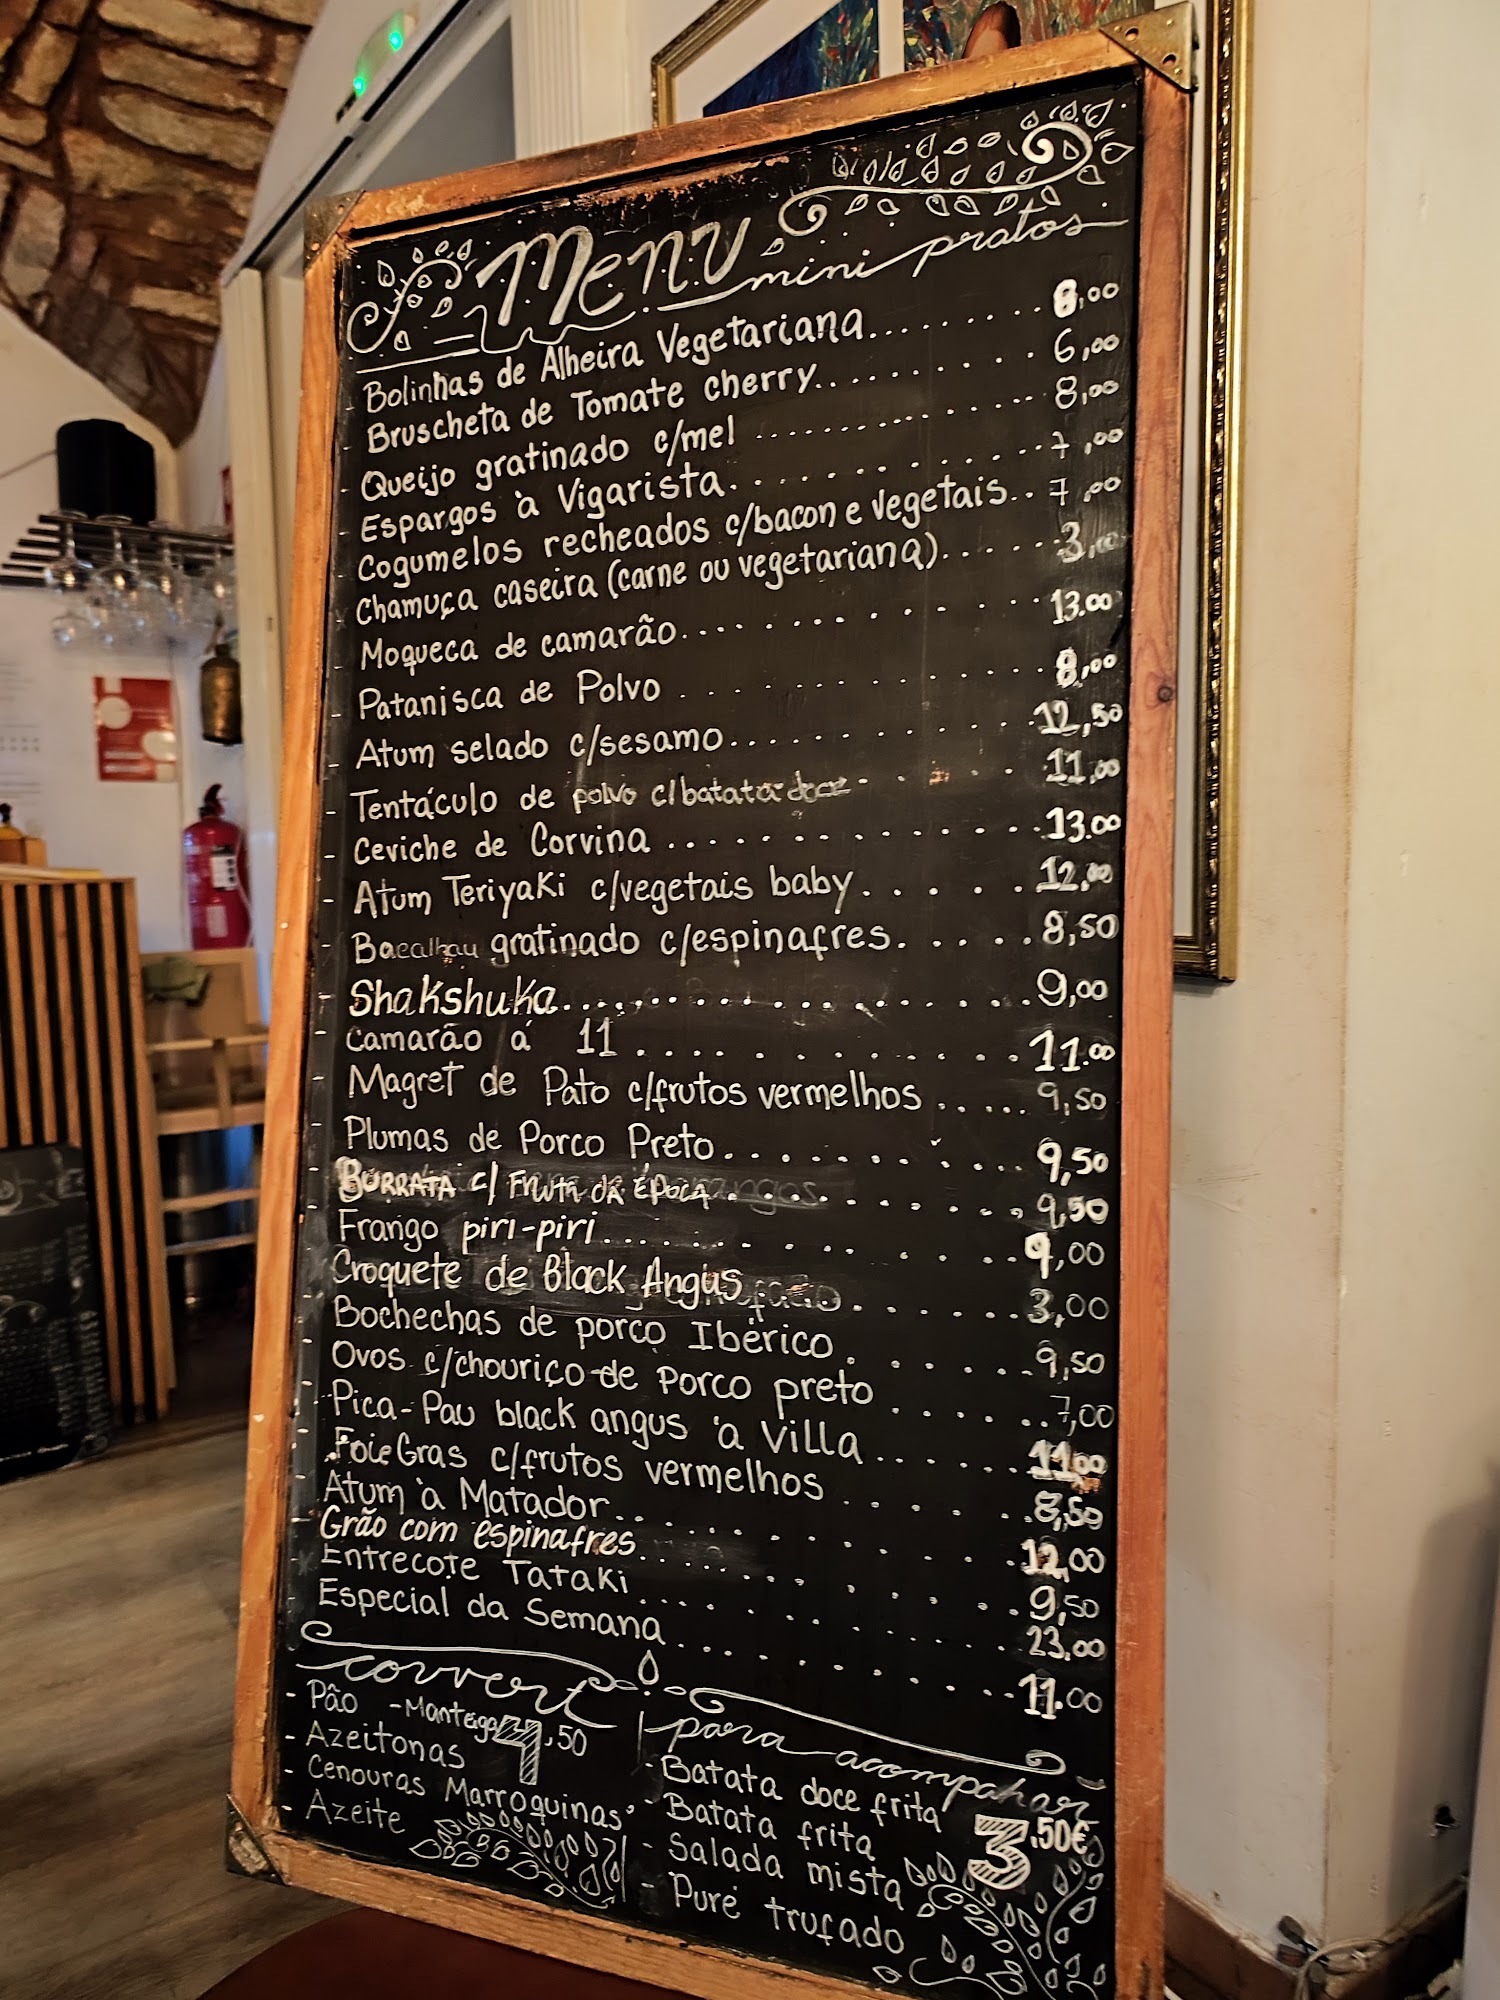 Menu mini pratos
- Bolinhas de Alheira Vegetariana......... 8,00
- Bruscheta de Tomate cherry......... 6,00
- Queijo gratinado c/mel ............... 8,00
- Espargos à Vigarista............ 7,00
- Cogumelos recheados c/bacon e vegetais.. 7,00
- Chamuça caseira (carne ou vegetariana)...... 3,00
- Moqueca de camarão............ 13.00
- Patanisca de Polvo ............ 8,00
- Atum selado c/sesamo............ 12,50
- Tentáculo de polvo c/batata doce..... 11,00
- Ceviche de Corvina ............... 13.00
- Atum Teriyaki c/vegetais baby...... 12,00
- Bacalhau gratinado c/espinafres..... 8,50
- Shakshuka............... 9,00
- Camarão á 11 ............ 11.00
- Magret de Pato c/frutos vermelhos ..... 9,50
- Plumas de Porco Preto............ 9,50
- BURRATA c/ FRUTA DA ÉPOCA......... 9,50
- Frango piri-piri............ 9,00
- Croquete de Black Angus......... 3,00
- Bochechas de porco Ibérico....... 9,50
- Ovos c/chouriço de Porco preto...... 7,00
- Pica-Pau black angus à Villa....... 11,00
- Foie Gras c/frutos vermelhos....... 8,50
- Atum à Matador............ 12,00
- Grão com espinafres............ 9,50
- Entrecote Tataki............ 23.00
- Especial da Semana............ 11.00
couvert
- Pão - Manteiga 1,50
- Azeitonas
- Cenouras Marroquinas
- Azeite
para acompanhar
- Batata doce frita
- Batata frita 3.50€
- Salada mista
- Puré trufado